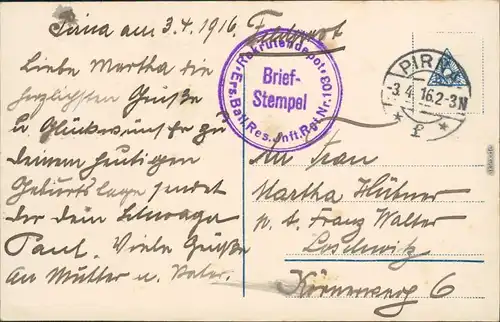 Pirna am 3.4.1916.
Feldpost
Liebe Martha die
herzlichsten Grüße
u. Glückwünsche zu
deinem heutigen
Geburtstage sendet
der dein Schwager
Paul. Viele Grüße
an Mutter u. Vater.
Rekrutendepot
Ers.Batl.Res.Inft.Rgt.Nr.103
Brief-
Stempel
PIRNA
-3.4.16.2-3N
* f *
An Frau
Martha Hübner
p. A. Franz Walter
Loschwitz
Körnerweg 6